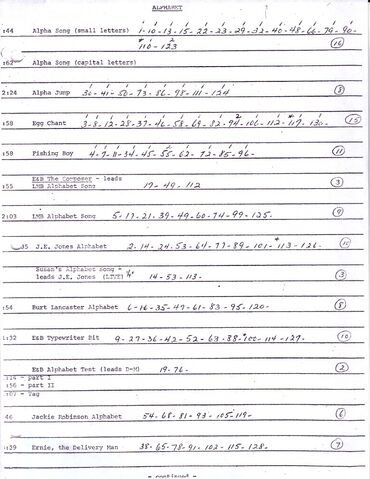 ALPHABET
:44 Alpha Song (small letters) 1-10-13-15-22-23-29-32-40-48-66-79-90-
110-123 (16)
:62 Alpha Song (capital letters)
2:24 Alpha Jump 30-41-50-73-86-98-111-124 (8)
:58 Egg Chant 3-8-12-28-37-46-58-69-82-94-106-112-117-130- (15)
:58 Fishing Boy 4-7-11-34-45-55-62-72-85-96- (11)
E&B The Composer - leads
:55 LMB Alphabet Song 17-49-112 (3)
2:03 LMB Alphabet Song 5-17-21-39-49-60-74-99-125- (9)
:35 J.E. Jones Alphabet 2-14-24-53-64-77-89-101-113-126-
Susan's Alphabet Song -
leads J.E. Jones (LIVE) 14-53-113- (3)
:54 Burt Lancaster Alphabet 6-16-35-47-61-83-95-120- (8)
1:32 E&B Typewriter Bit 9-27-36-42-52-63-88-100-114-127- (10)
E&B Alphabet Test (leads D-M) 19-76- (2)
- part I
:56 - part II
:07 - Tag
46 Jackie Robinson Alphabet 54-68-81-93-105-119- (6)
:39 Ernie, the Delivery Man 38-65-78-91-102-115-128- (7)
- continued -